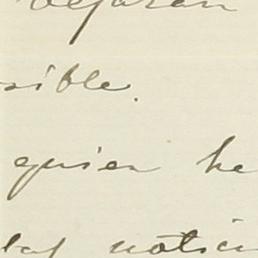 sible.
quien he
las notici